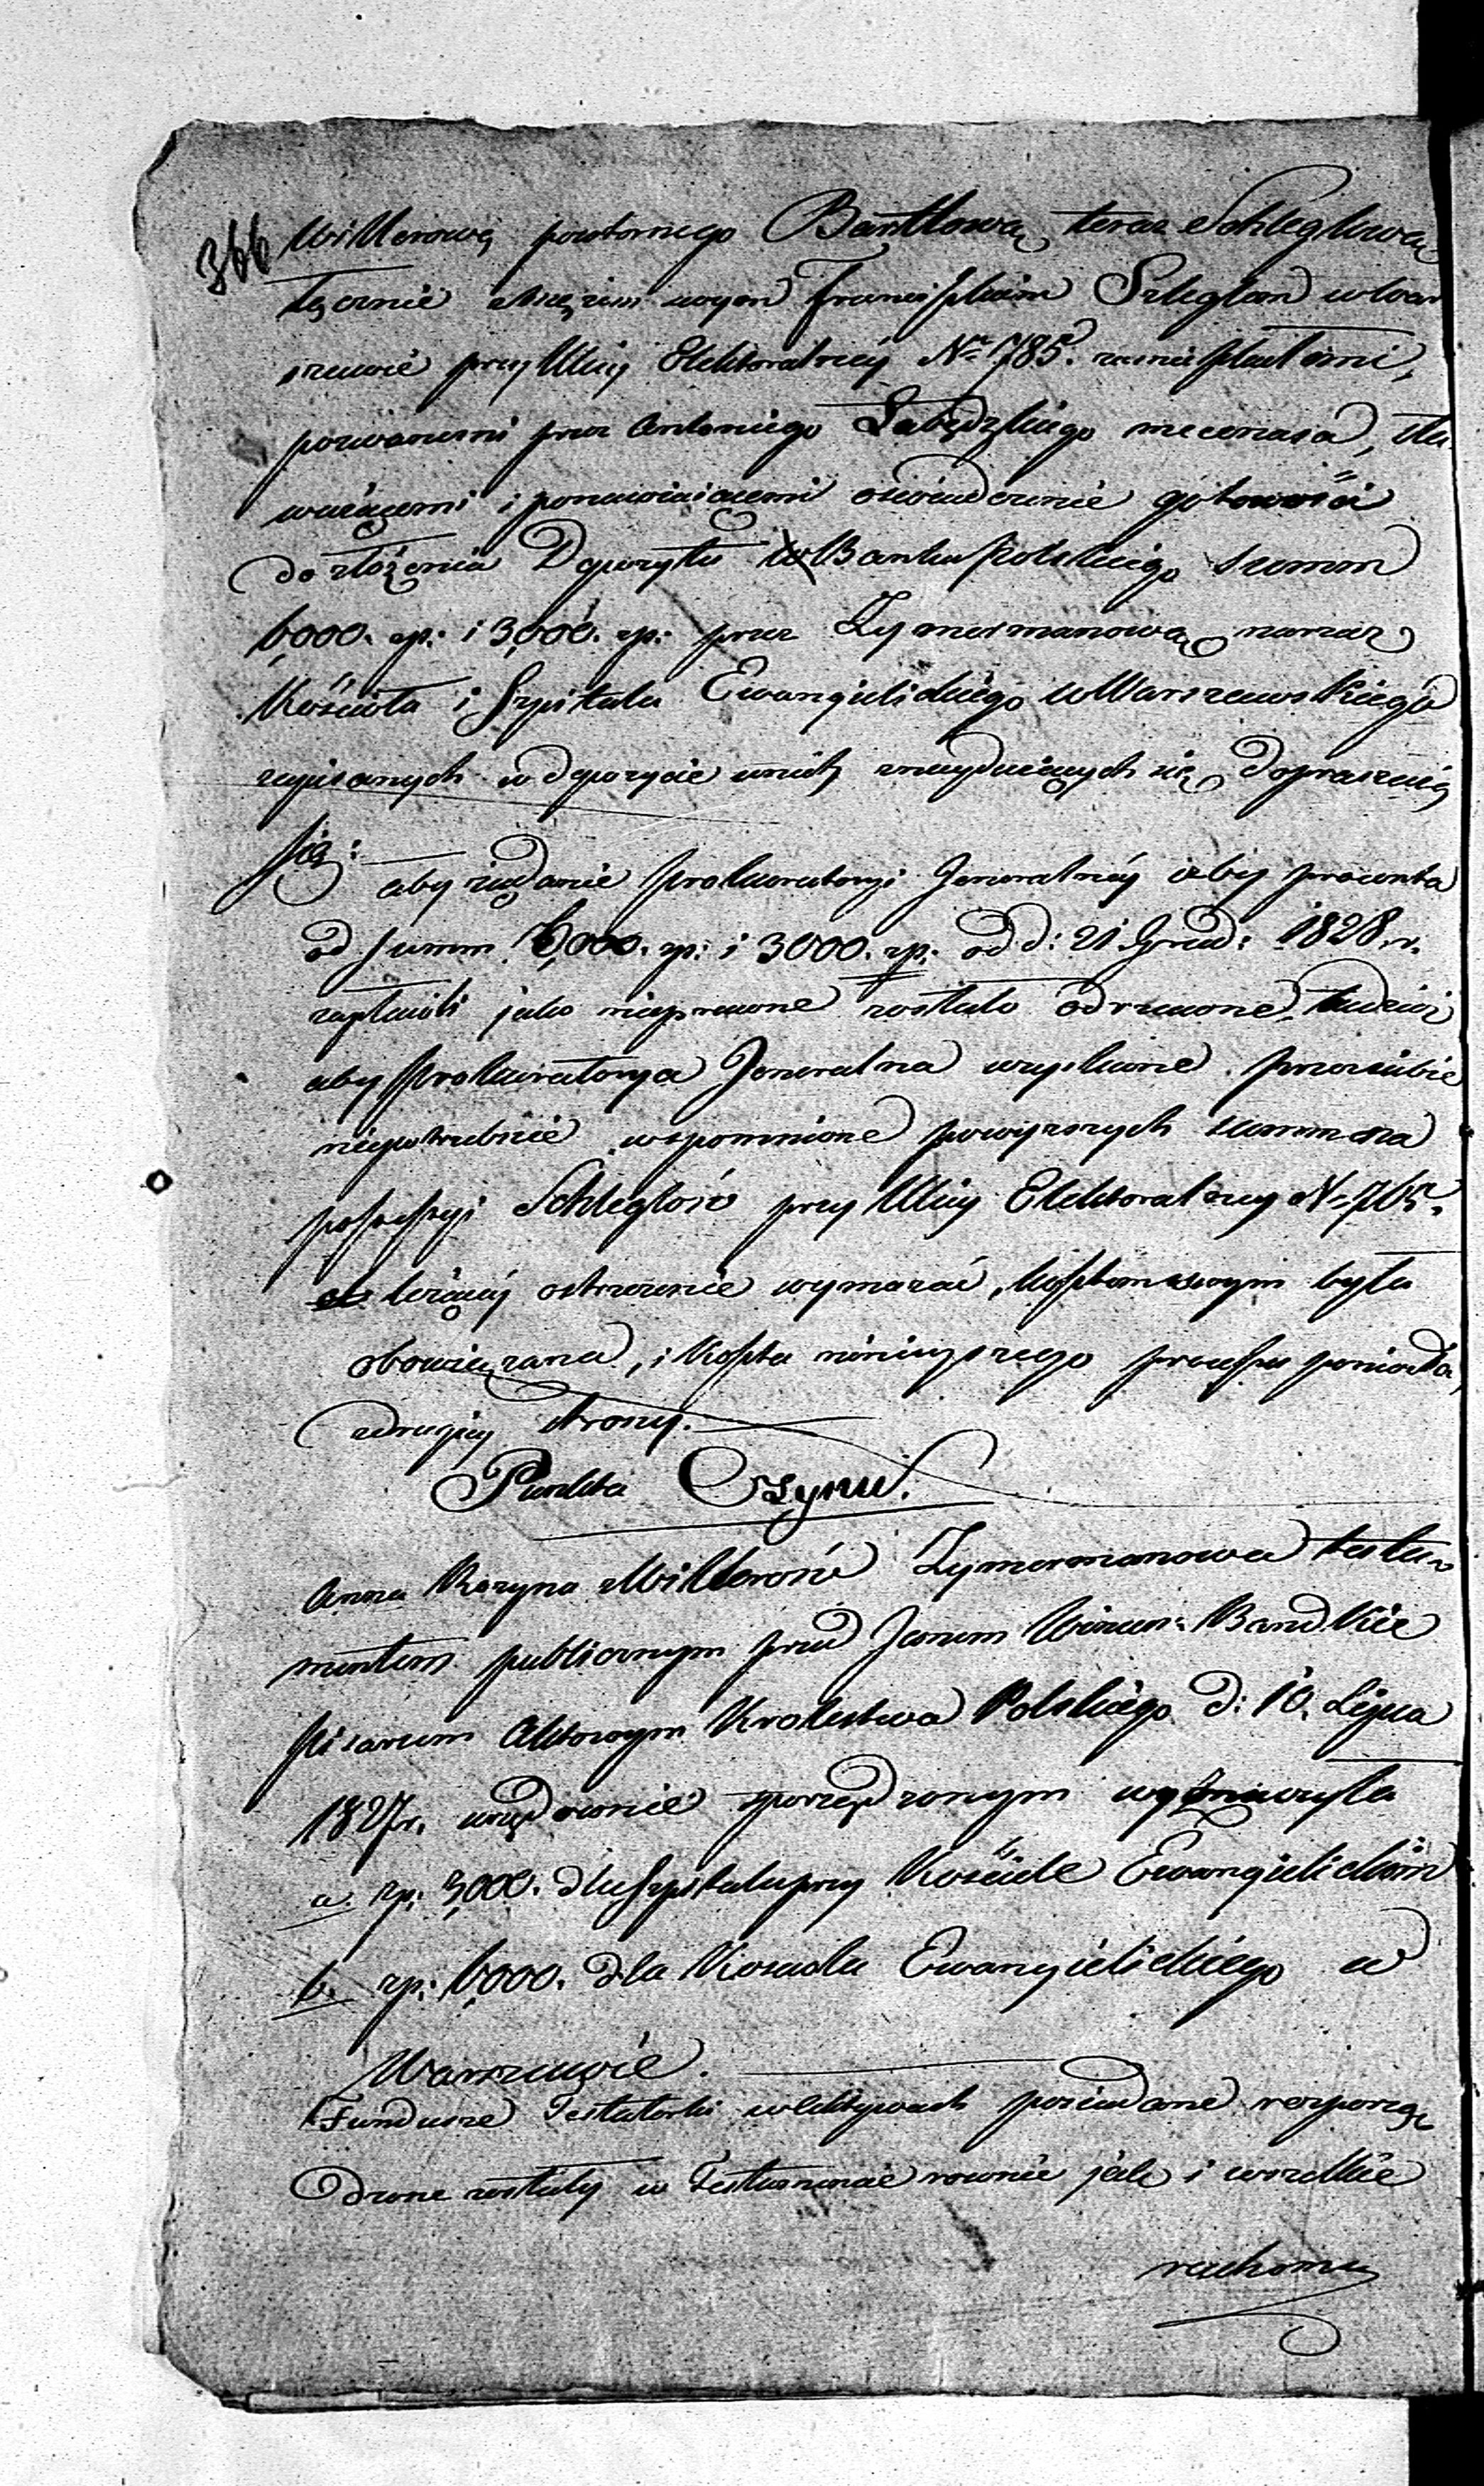 366 Millerową powtornego Bantlową, teraz Schleglową,
łącznie z Mężem swym Franciszkiem Szleglem w War
szawie przy Ulicy Elektoralnéy Nro 785. zamieszkałemi,
pozwanemi przez Antoniego Łabędzkiego mecenasa, sta
waiącemi i ponawiaiącemi oświadczenie gotowości
do złożenia Depozytu w Banku Polskiego summ
6,000. zp: i 3,000. zp: przez Zymermanową na rzecz
Kościoła i Szpitala Ewangielickiego w Warszawskiego
zapisanych w depozycie u nich znayduiących się, dopraszaią
się:
aby żądanie Prokuratoryi Generalnéy iżby procenta
od summ 6,000. zp: i 3000. zp: od d: 21 Grud: 1828 r.
zapłacili jako nieprawne zostało odrzucone, tudzież
aby Prokuratorya Generalna uzyskane przez siebie
niepotrzebnie wspomnione powyższych summ na
possessyi Schleglów przy Ulicy Elektoralney N 785.
leżącéy ostrzeżenie wymazać, kosztem swym była
obowiązana, i koszta ninieyszego processu poniosła,
z drugiey strony.
Punkta Czynu.
Anna Rozyna z Millerów Zymermanowa testa-
mentem publicznym przed Janem Wincen: Bandkie
Pisarzem Aktowym Krolestwa Polskiego d: 10. Lipca
1827 r. urzędownie sporządzonym wyznaczyła
a. zp: 3,000. dla Szpitala przy Kościele Ewangielickim
b. zp: 6,000. dla Kościoła Ewangielickiego w
Warszawie.
Fundusze Testatorki w aktywach posiadane rozporzą
dzone zostały w Testamencie rownie jak i wszelkie
ruchome